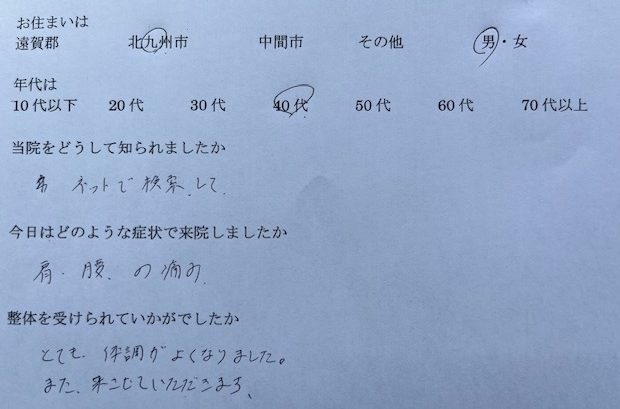 お住まいは
遠賀郡 北九州市 中間市 その他 男・女
年代は
10代以下 20代 30代 40代 50代 60代 70代以上
当院をどうして知られましたか
ネットで検索して
今日はどのような症状で来院しましたか
肩、腰、の痛み
整体を受けられていかがでしたか
とても、体調がよくなりました。
また、来させていただきます、